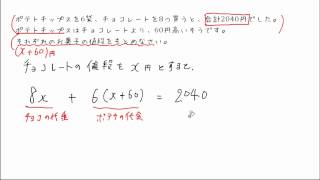 ポテトチップスを6袋、チョコレートを8つ買うと、合計2040円でした。
ポテトチップスはチョコレートより、60円高いそうです。
それぞれのお菓子の値段をもとめなさい。
(x+60)円
チョコレートの値段をx円とすると、
8x + 6(x+60) = 2040
チョコの代金 ポテチの代金